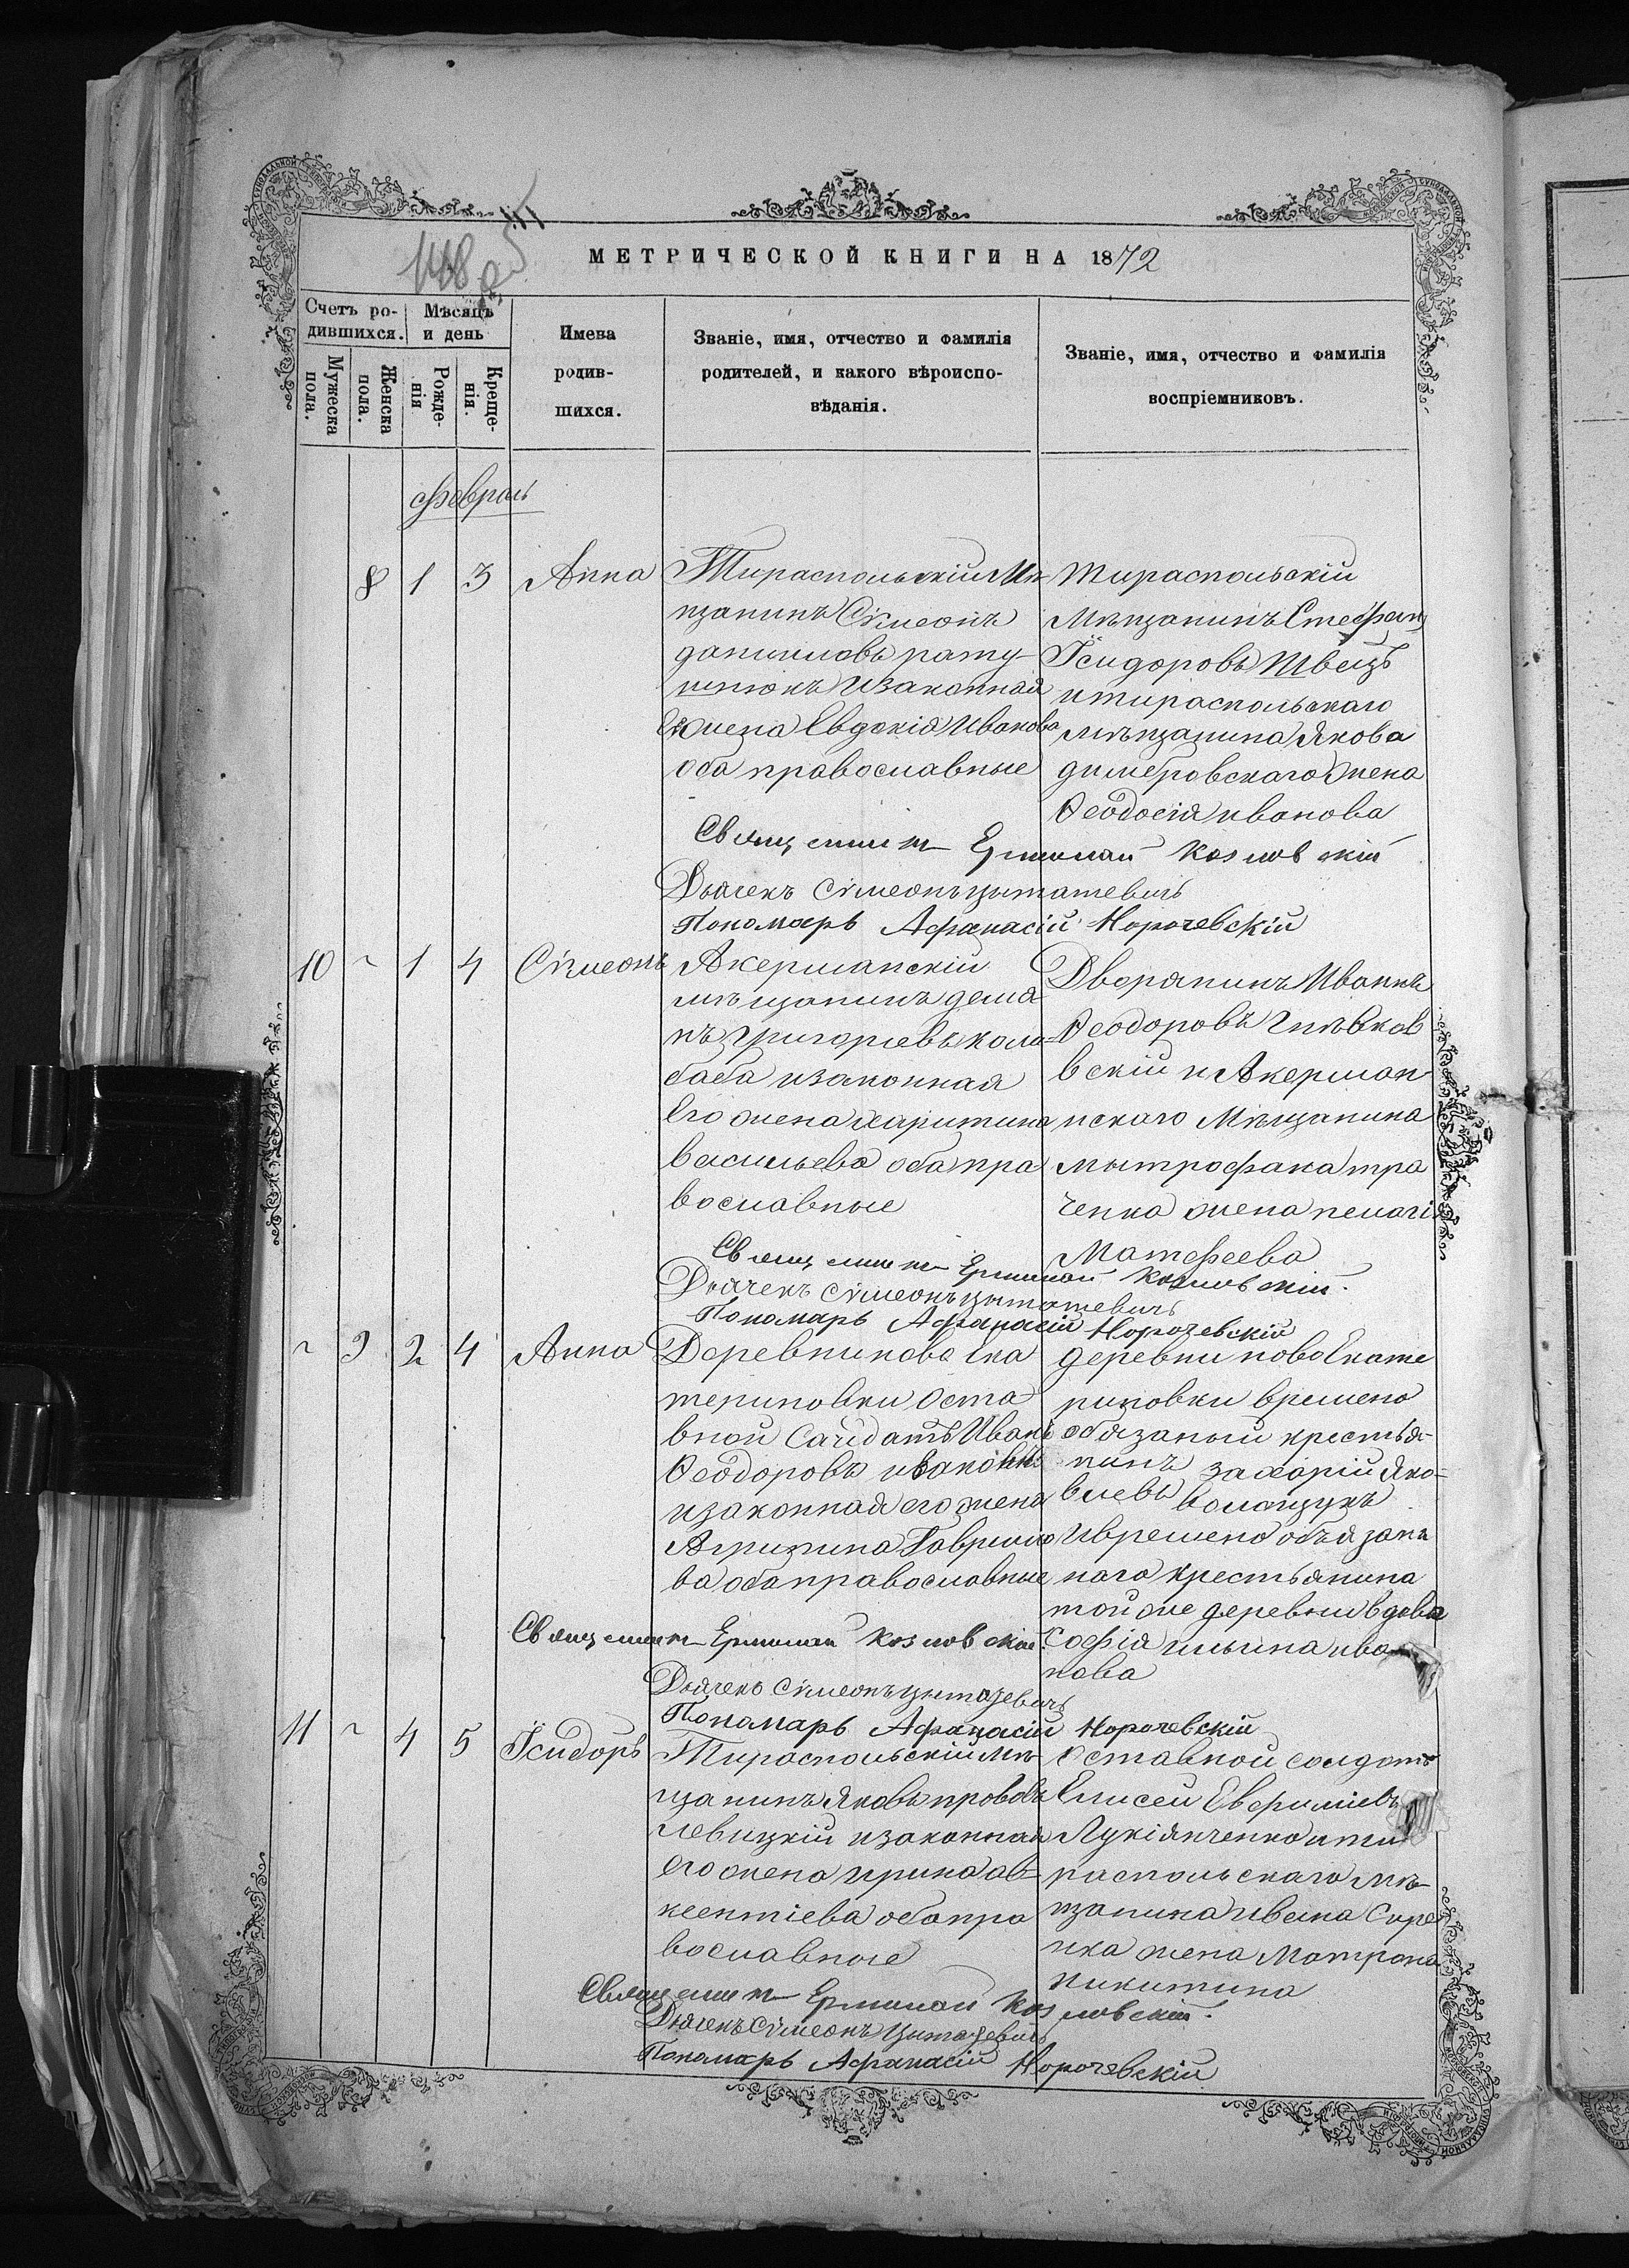 148
МЕТРИЧЕСКОЙ КНИГИ НА 1872
Счетъ ро-
дившихся.
Мѣсяцъ
и день
Имена
родив-
шихся.
Званіе, имя, отчество и фамилія
родителей, и какого вѣроиспо-
вѣданія.
Званіе, имя, отчество и фамилія
воспріемниковъ.
Мужеска
пола.
Женска
пола.
Рожде-
нія
Креще-
нія.
Февраль
8 1 3 Анна
Тираспольскій Мѣ-
щанинъ Сѵмеонъ
даниловъ рату-
шнюкъ изаконная
Его жена Евдокія Иванова
оба православные
Тираспольскій
Мѣщанинъ Стефанъ
Ісидоровъ Швецъ
итираспольскаго
мѣщанина Якова
димбровскаго жена
Ѳеодосія иванова
Священник Ермолай Козловскій
Дьячекъ Сѵмеонъ цыташевичъ
Пономарь Афанасій Норочевскій
10 ~ 1 4 Сѵмеонъ
Акерманскій
мѣщанинъ демя
нъ григорьевъ кола-
баба изаконная
Его жена харитина
васильева оба пра
вославные
Дворянинъ Иванъ
Ѳеодоровъ Гнѣвков
вскій и Акерман-
нскаго Мѣщанина
мытрофана тра
ченка жена пелагія
Матфеева
Священник Ермолай Козловскій.
Дьячекъ Сѵмеонъ цыташевичъ
Пономарь Афанасій Норочевскій
~ 9 2 4 Анна
Деревни ново Ека
териновки оста
вной Салдатъ Иванъ
Ѳеодоровъ ивановъ
изаконная его жена
Агрипина Гаврило
ва оба православные
деревни ново Екате
риновки времено
обязаный крестья-
нинъ захарій Яко-
влевъ волощукъ
Ивремено обязана
наго крестьянина
той же деревни вдова
Софія ильина ива
нова
Священник Ермолай Козловскій.
Дьячекъ Сѵмеонъ цыташевичъ
Пономарь Афанасій Норочевскій
11 ~ 4 5 Ісидоръ
Тираспольскій мѣ-
щанинъ Яковъ прововъ
левицкій изаконная
его жена ирина ав-
ксентіева оба пра
вославные
Оставной солдатъ
Елисей Евфиміевъ
Лукіянченко и ти
распольскаго мѣ-
щанина ивана
жена Матрона
никитина
Священник Ермолай Козловскій.
Дьячекъ Сѵмеонъ Цыташевичъ
Пономарь Афанасій Норочевскій